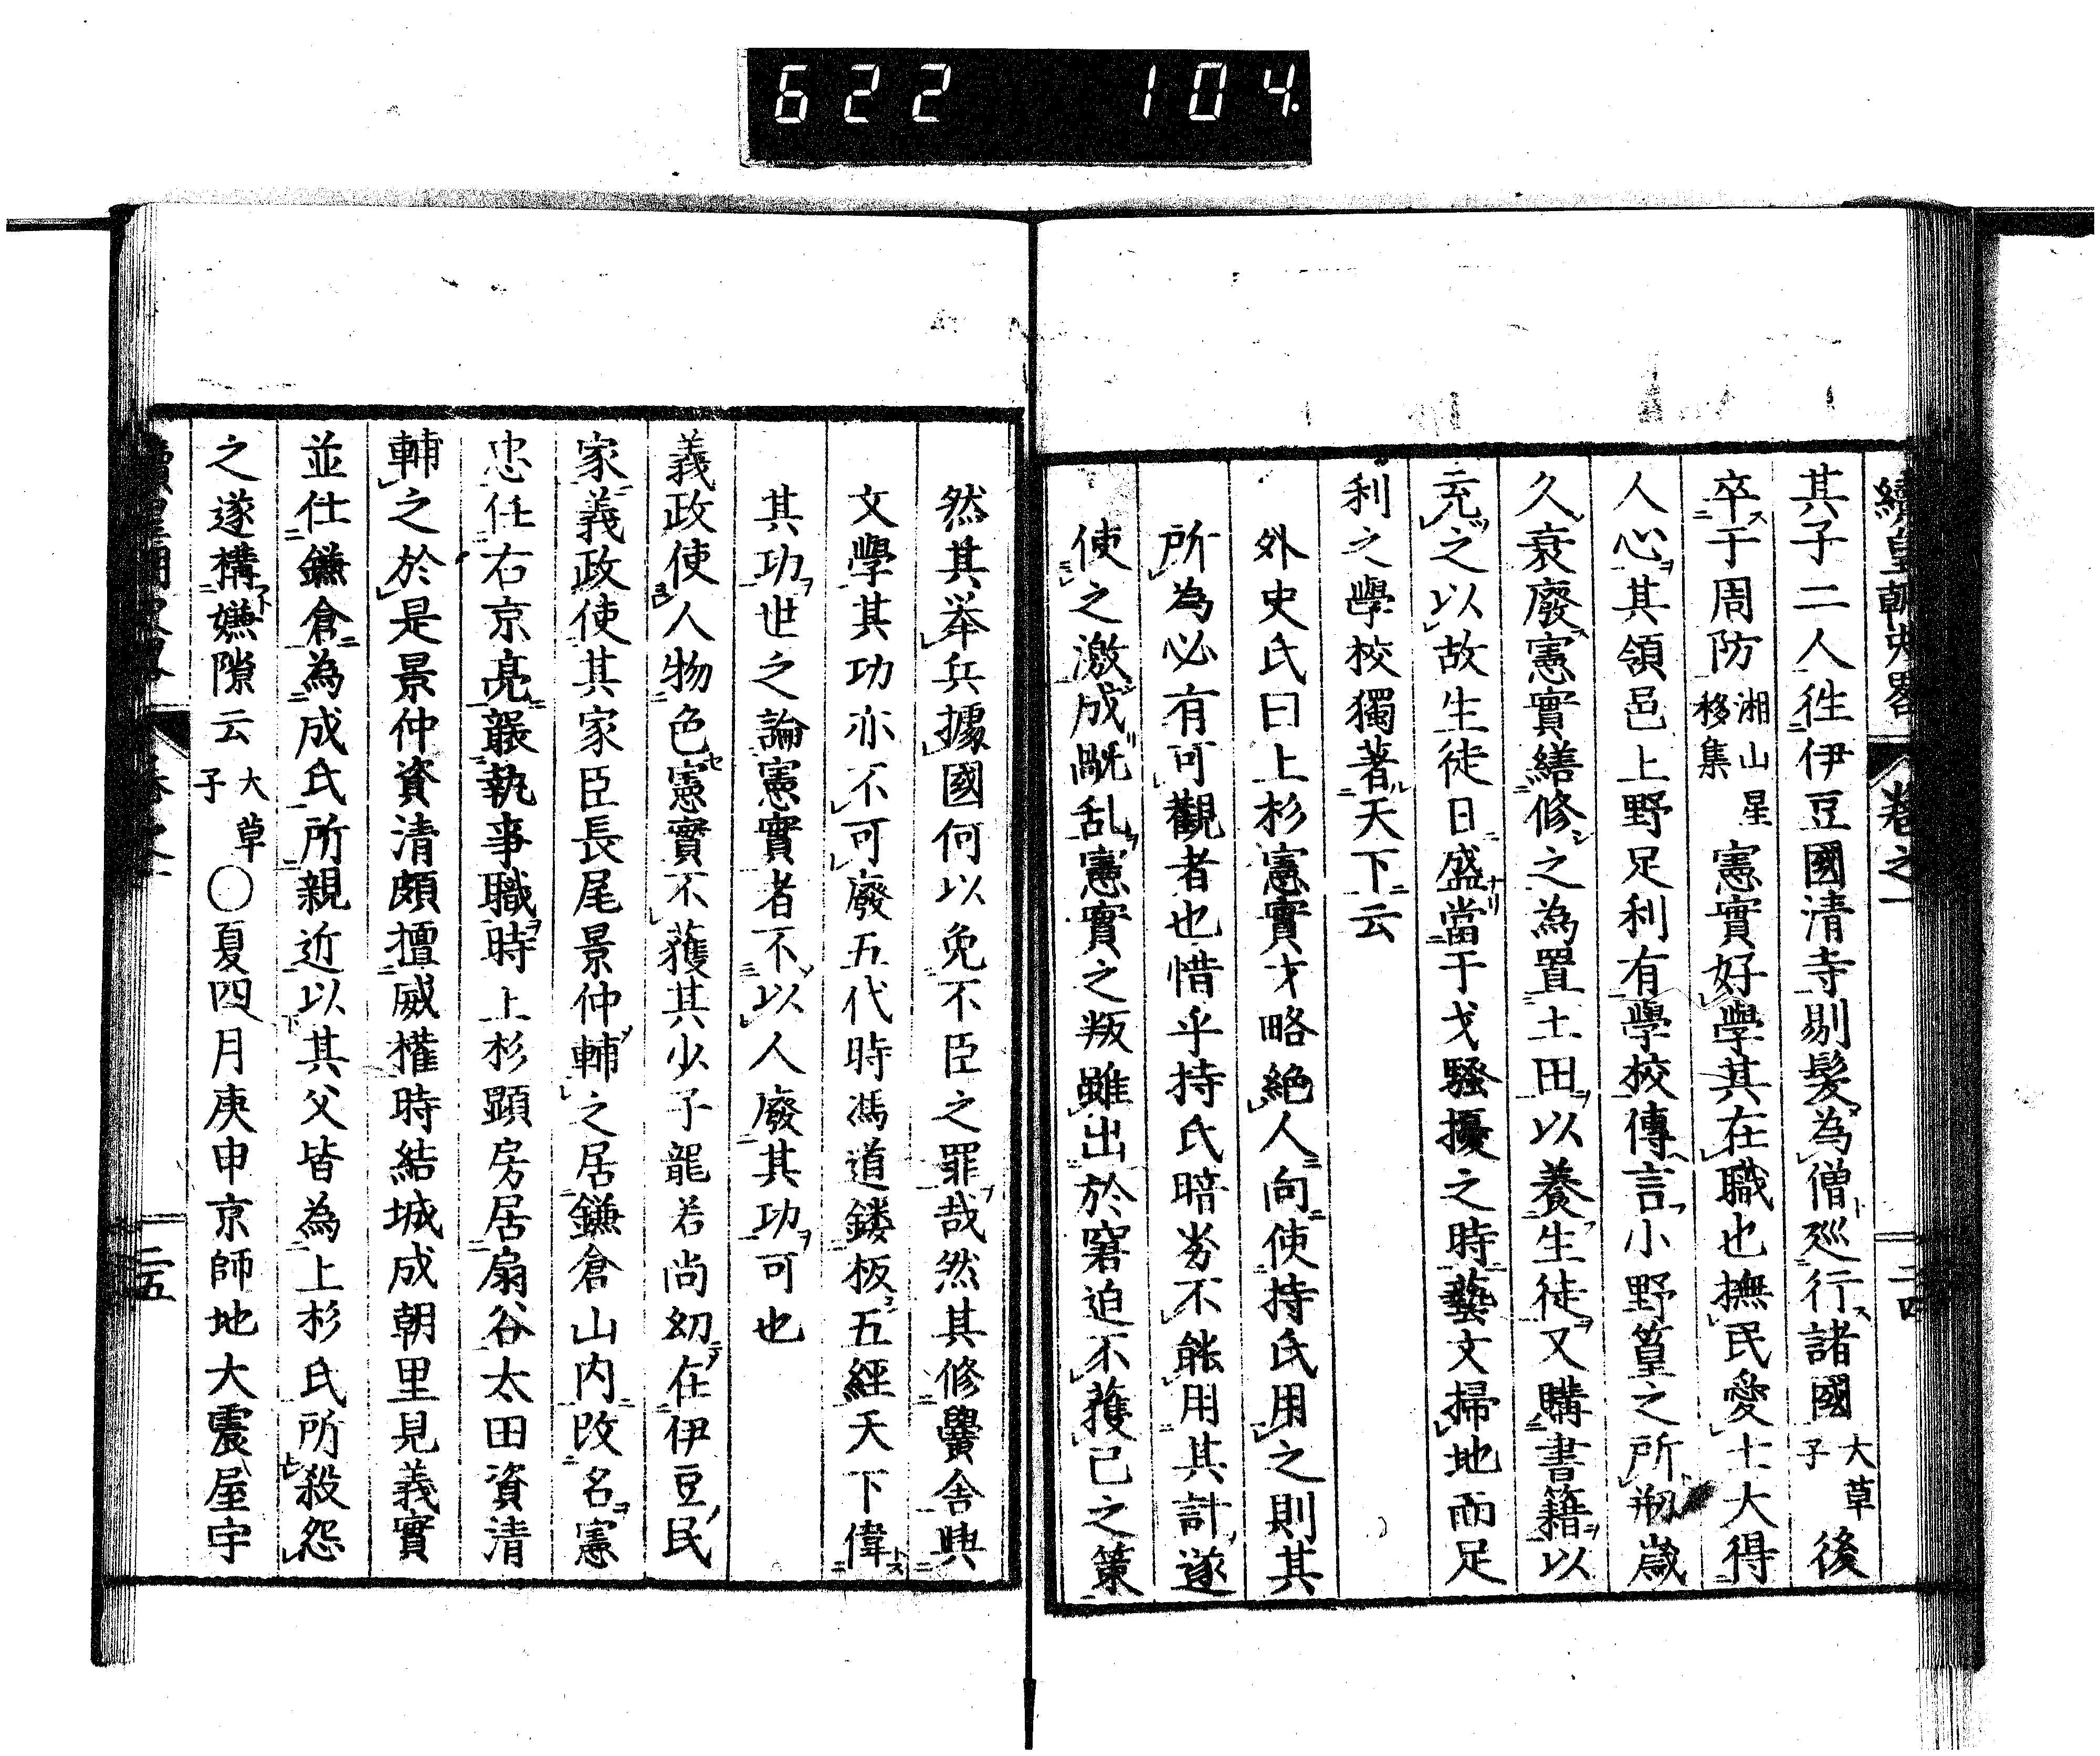 622 104
續皇朝史畧 卷之一 二四
其子二人徃伊豆國清寺剔髮為僧巡行諸國大草子後
卒于周防湘山星移集憲實好學其在職也撫民愛士大得
人心其領邑上野足利有學校傳言小野篁之所剏歲
久衰廢憲實繕修之為置土田以養生徒又購書籍以
充之以故生徒日盛當干戈騷擾之時藝文掃地而足
利之學校獨著天下云
外史氏曰上杉憲實才略絶人向使持氏用之則其
所為必有可觀者也惜乎持氏暗劣不能用其計遂
使之激成甌乱憲實之叛雖出於窘迫不獲已之策
然其举兵據國何以免不臣之罪哉然其修黌舍興
文學其功亦不可廢五代時馮道鏤板五經天下偉
其功世之論憲實者不以人廢其功可也
義政使人物色憲實不獲其少子龍若尚幼在伊豆民
家義政使其家臣長尾景仲輔之居鎌倉山内改名憲
忠任右京亮襲執事職時上杉顕房居扇谷太田資清
輔之於是景仲資清頗擅威權時結城成朝里見義實
並仕鎌倉為成氏所親近以其父皆為上杉氏所殺怨
之遂構嫌隙云大草子○夏四月庚申京師地大震屋宇
二五